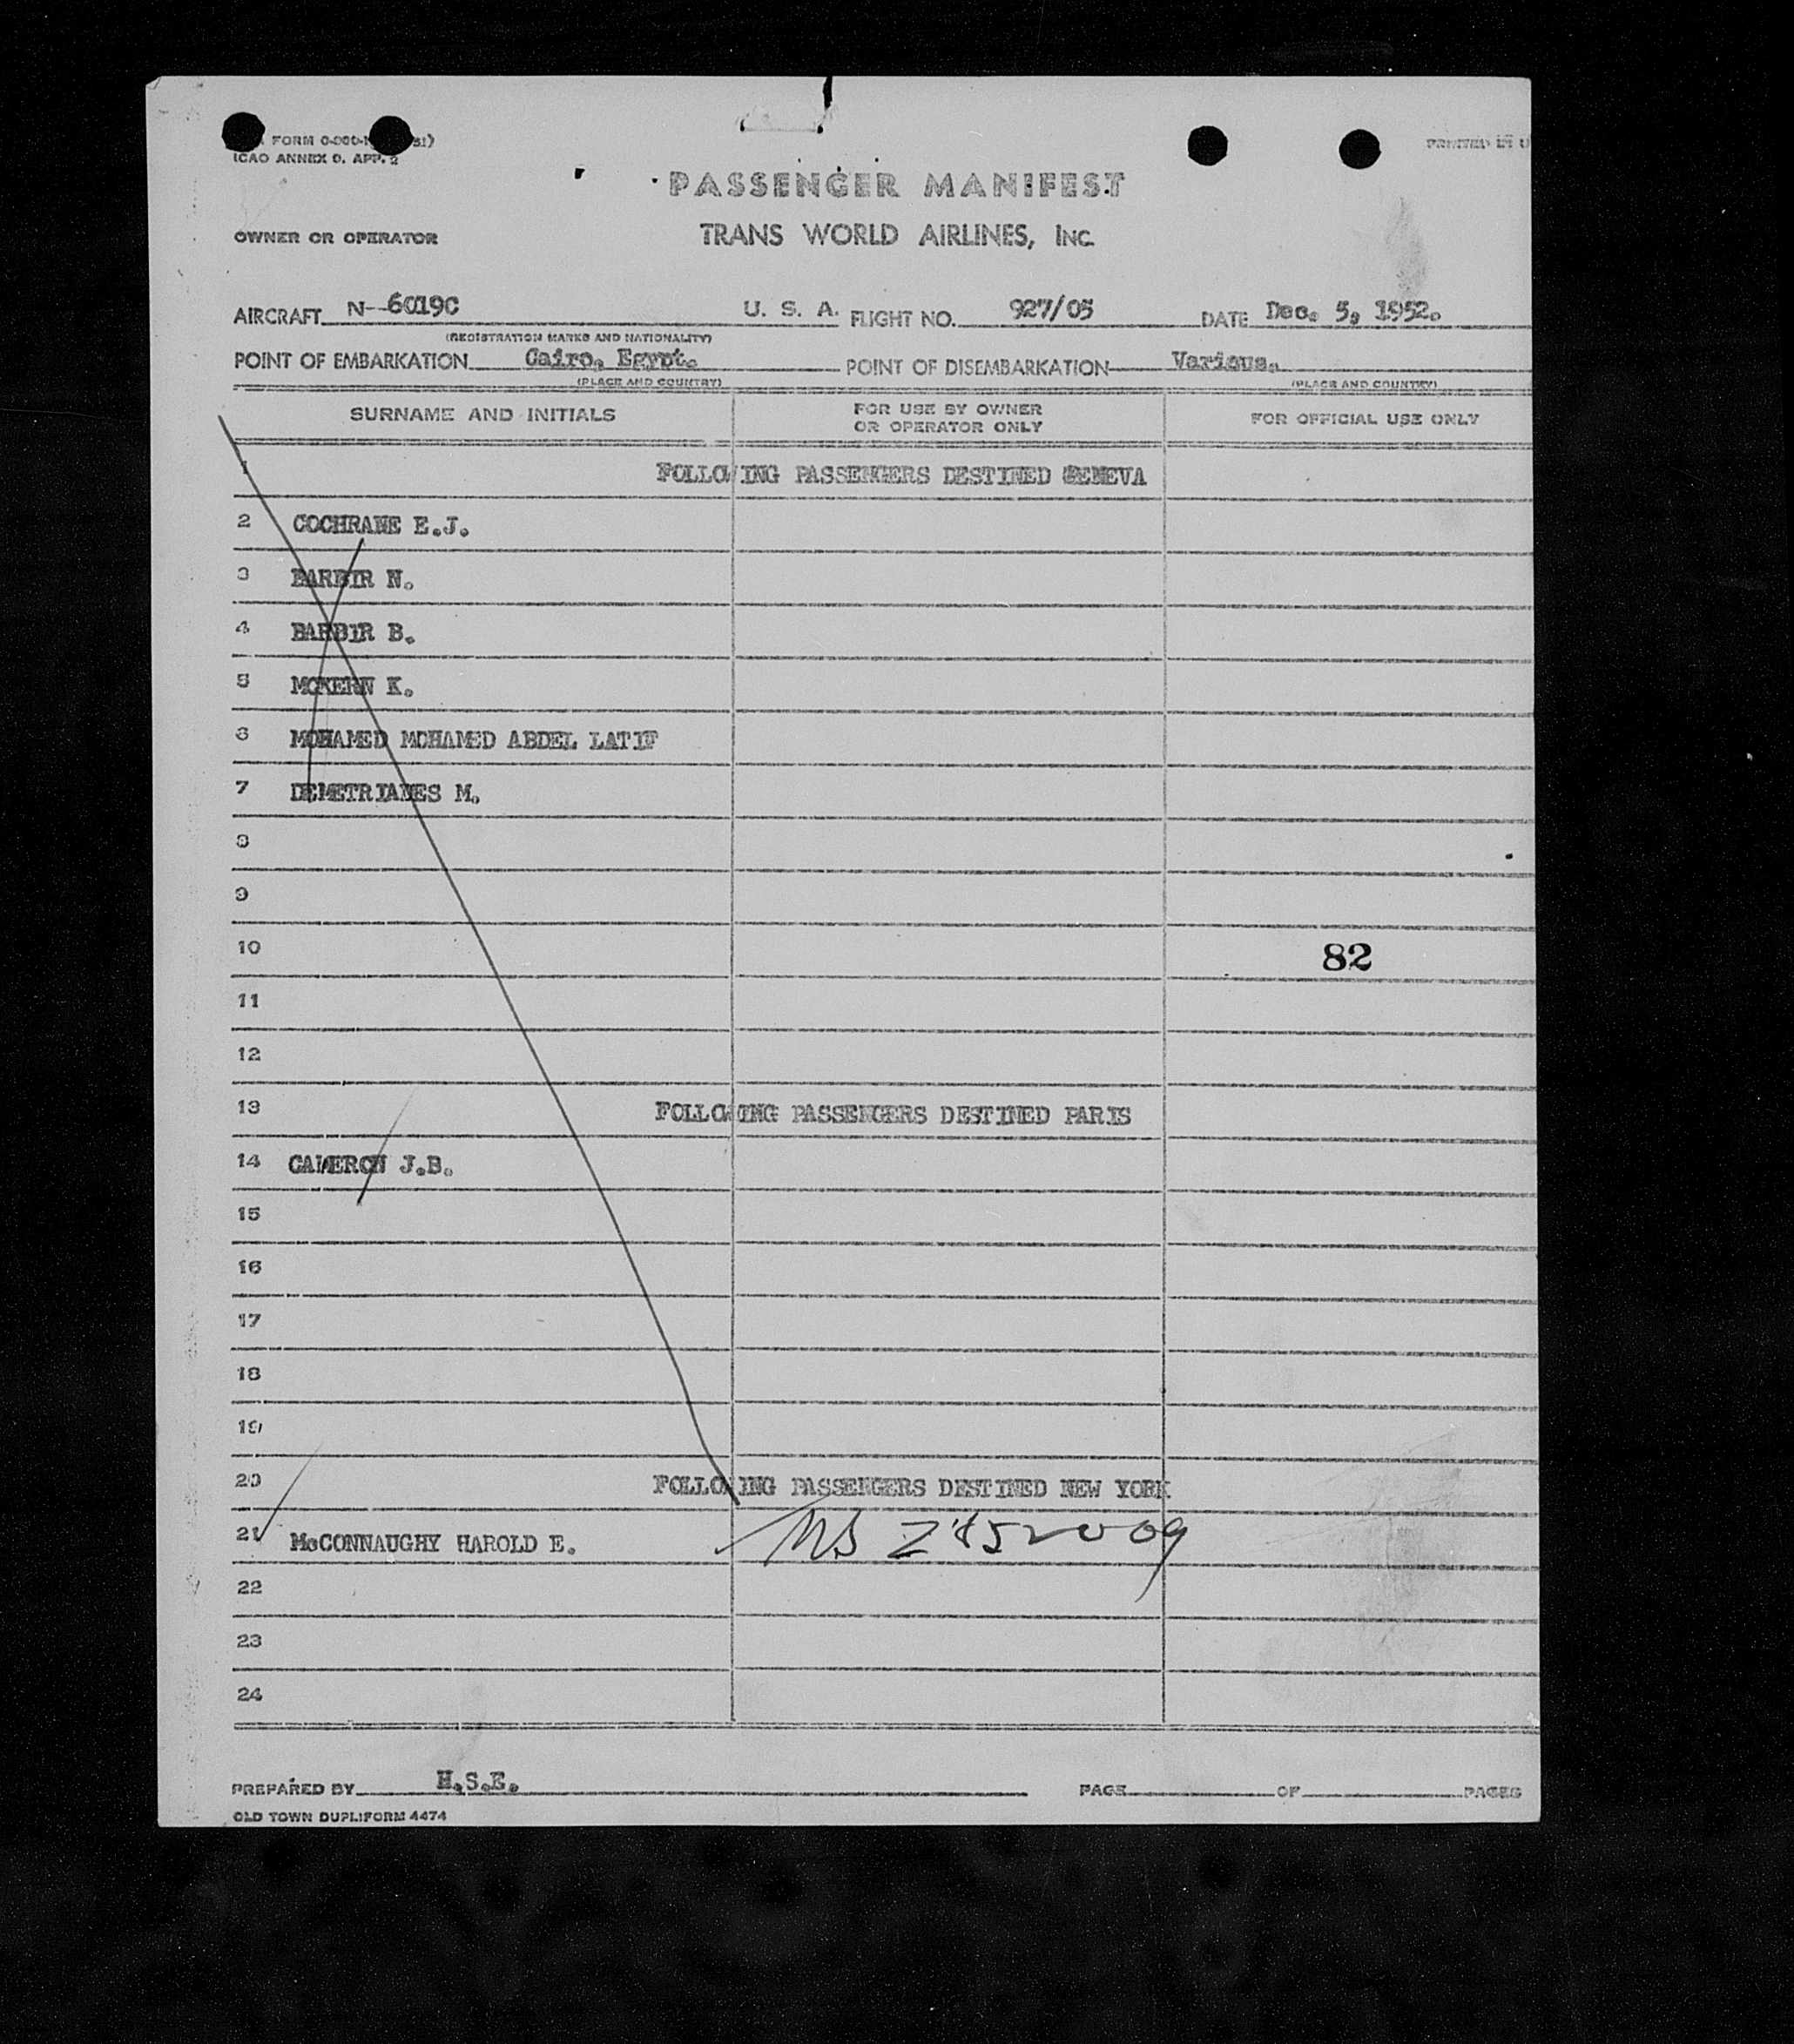 FORM 0-
ICAO ANNEX 9. APP. 2
PRINTED IN U
PASSENGER MANIFEST
OWNER OR OPERATOR TRANS WORLD AIRLINES, INC.
AIRCRAFT N--6019C U. S. A. FLIGHT NO. 927/05 DATE Dec. 5, 1952.
(REGISTRATION MARKS AND NATIONALITY)
POINT OF EMBARKATION Cairo, Egypt. POINT OF DISEMBARKATION Various.
(PLACE AND COUNTRY) (PLACE AND COUNTRY)
SURNAME AND INITIALS FOR USE BY OWNER OR OPERATOR ONLY FOR OFFICIAL USE ONLY
1 FOLLOWING PASSENGERS DESTINED GENEVA
2 COCHRANE E.J.
3 BARBIR N.
4 BARBIR B.
5 MCKERN K.
6 MOHAMED MOHAMED ABDEL LATIF
7 DEMETRIADES M.
8
9
10 82
11
12
13 FOLLOWING PASSENGERS DESTINED PARIS
14 CAMERON J.B.
15
16
17
18
19
20 FOLLOWING PASSENGERS DESTINED NEW YORK
21 McCONNAUGHY HAROLD E.
22
23
24
PREPARED BY H.S.E. PAGE OF PAGES
OLD TOWN DUPLIFORM 4474